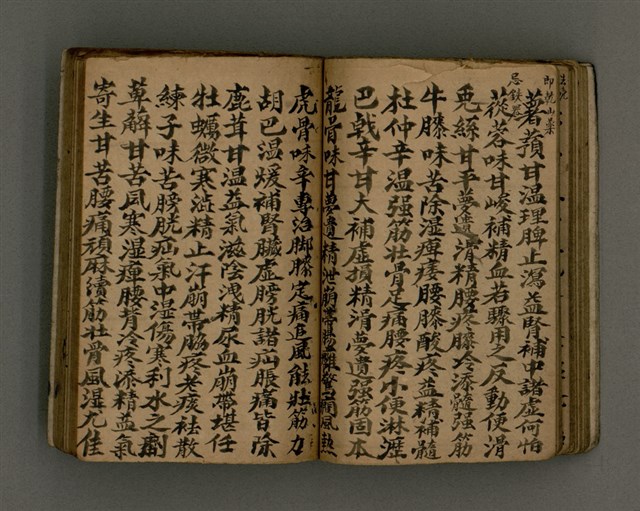 即乾山葉
薯蕷甘温理脾止瀉益腎補中諸虛何怕
忌鉄器
蓯蓉味甘峻補精血若驟用之反動便滑
兎絲甘平夢遺滑精腰疼膝冷添髓强筋
牛膝味苦除湿痺痿腰膝酸疼益精補髓
杜仲辛温强筋壮骨足痛腰疼小便淋瀝
巴戟辛甘大補虛損精滑夢遺强筋固本
龍骨味甘夢遺精泄崩帶腸癰驚癇風熱
虎骨味辛專治脚膝定痛追風能壯筋力
胡巴温煖補腎臟虛膀胱諸疝脹痛皆除
鹿茸甘温益氣滋陰洩精尿血崩帶堪任
牡蠣微寒澁精止汗崩帶脇疼老痰祛散
練子味苦膀胱疝氣中湿傷寒利水之劑
萆薢甘苦風寒湿痺腰背冷疼添精益氣
寄生甘苦腰痛頑麻續筋壮骨風湿尤佳